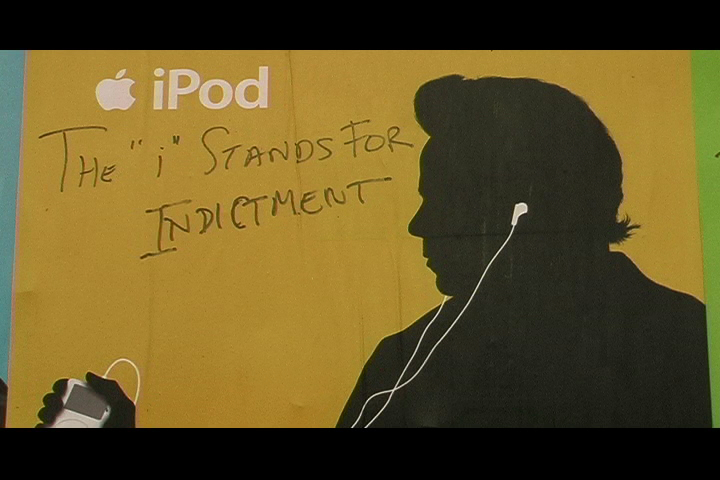 iPod
THE "i" STANDS FOR
INDICTMENT